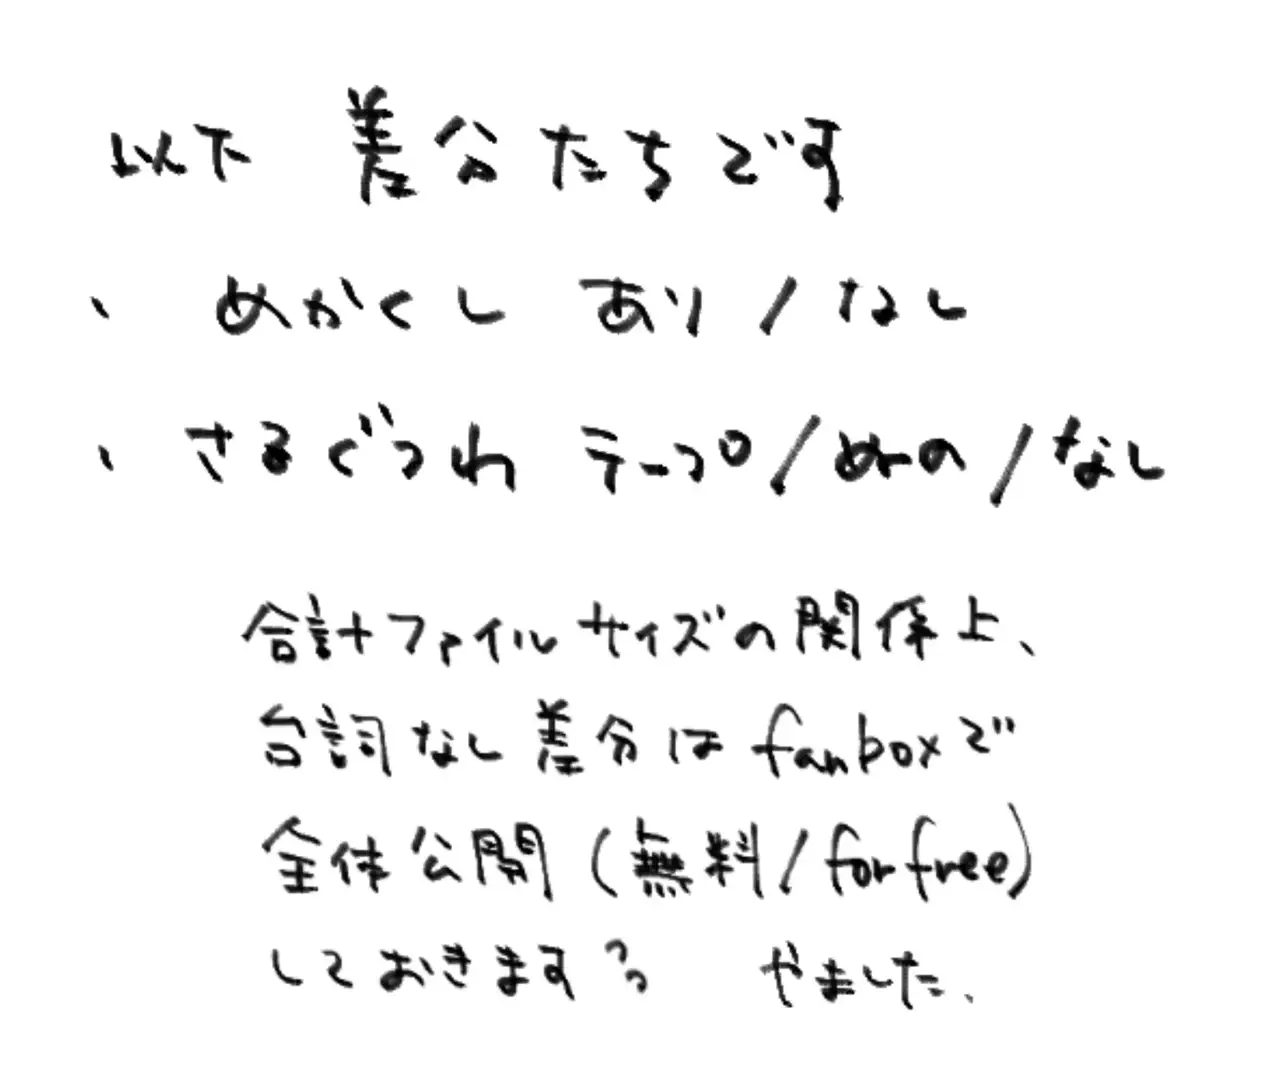 以下 差分たちです
、めかくし あり/なし
、さるぐつわ テープ/ぬの/なし
合計ファイルサイズの関係上、
台詞なし差分はfanboxで
全体公開(無料/for free)
しておきます〜〜 やました、